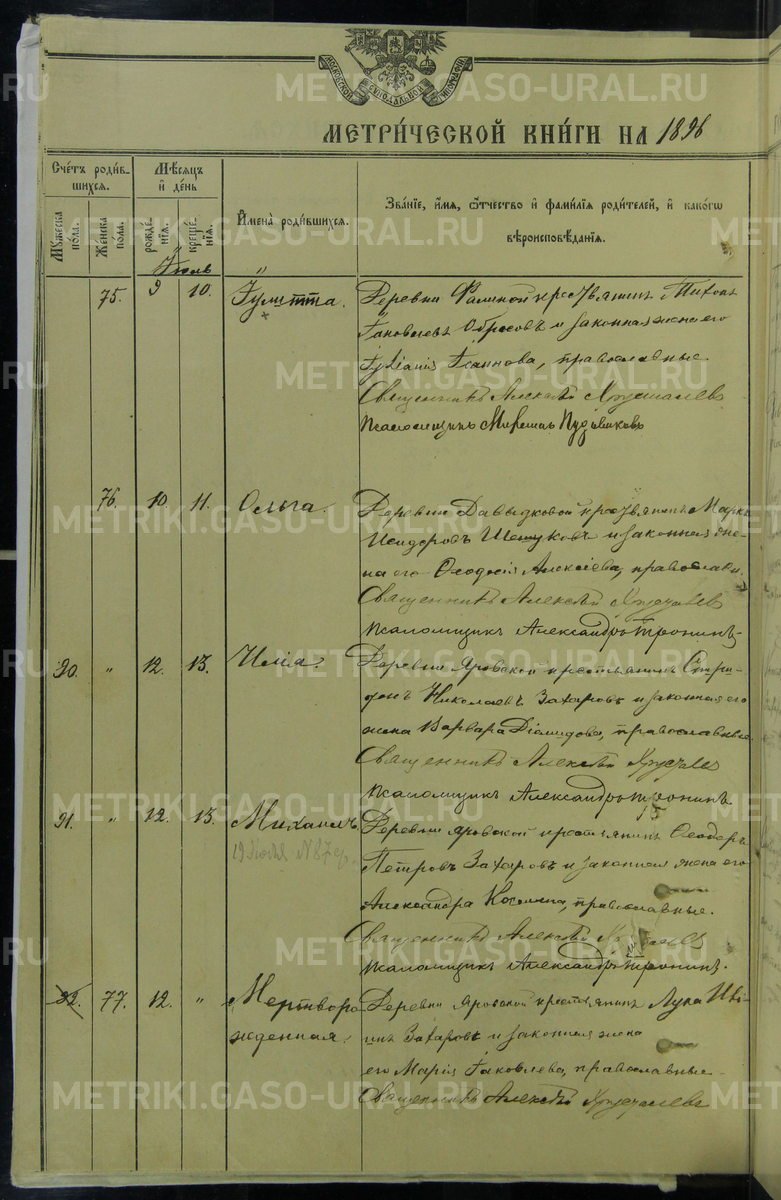 МОСКОВСКОЙ СѴНОДАЛЬНОЙ ТИПОГРАФІИ
МЕТРИ́ЧЕСКОЙ КНИ́ГИ НА 1896
Сче́тъ роди́в-
шихся.
Мѣсяцъ
и де́нь
Имена̀ роди́вшихся.
Зва́нїе, и́мя, о́тчество и фами́лїя роди́телей, и како́гѡ
вѣроисповѣ́данїя.
Му́жеска
по́ла.
Же́нска
по́ла.
рожде́-
нїя.
креще́-
нїя.
Іюль
"
75. 9 10. Іулитта. Деревни крестьянинъ Тихонъ
Яковлевъ Обросовъ и законная жена его
Іуліанія Іоаннова, православные.
Священникъ Алексѣй
Псаломщикъ
76. 10. 11. Ольга. Деревни Давыдковой крестьянинъ Маркъ
Исидоровъ и законная же-
на его Ѳеодосія Алексіева, православн.
Священникъ Алексѣй
Псаломщикъ Александръ Тронинъ.
20. " 12. 13. Илія. Деревни Яровской крестьянинъ Спири-
донъ Николаевъ Захаровъ и законная его
жена Варвара Діомидова, православные.
Священникъ Алексѣй
Псаломщикъ Александръ Тронинъ.
21. " 12. 13. Михаилъ Деревни Яровской крестьянинъ Ѳеодоръ
Петровъ Захаровъ и законная жена его
Александра Косьмина, православные.
Священникъ Алексѣй
Псаломщикъ Александръ Тронинъ.
22. 77. 12. " Мертворо- Деревни Яровской крестьянинъ Лука
жденная. Захаровъ и законная жена
его Марія Іаковлева, православные.
Священникъ Алексѣй
METRIKI.GASO-URAL.RU